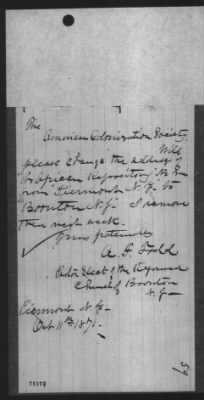 The
American Colonization Society,
Will
please change the address of
the African Repository
from Piermont N.Y. to
Boonton N.J. I remove
there next week.
Yours fraternally
A. F. Todd
Pastor Elect of the Reformed
Church of Boonton
N.J.
Piermont N.Y.
Oct 11th 1871.
59